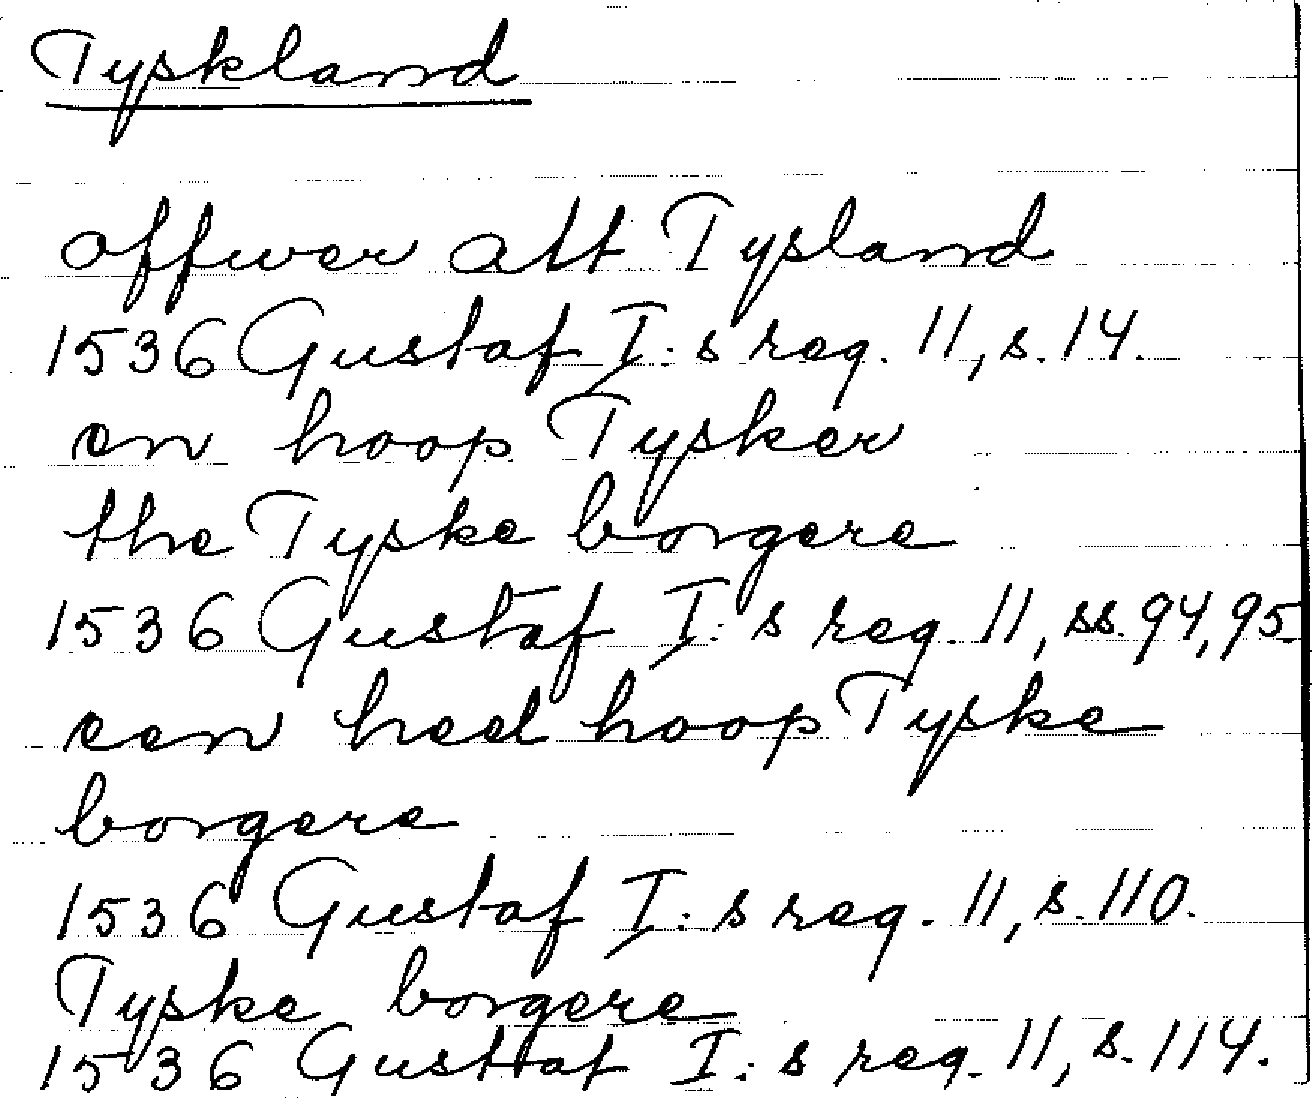 Tyskland
offwer alt Tysland
1536 Gustaf I:s reg. 11, s. 14.
en hoop Tysker
the Tyske borgere
1536 Gustaf I:s reg. 11, ss. 94, 95.
een heel hoop Tyske
borgere
1536 Gustaf I:s reg. 11, s. 110.
Tyske borgere
1536 Gustaf I:s reg. 11, s. 114.